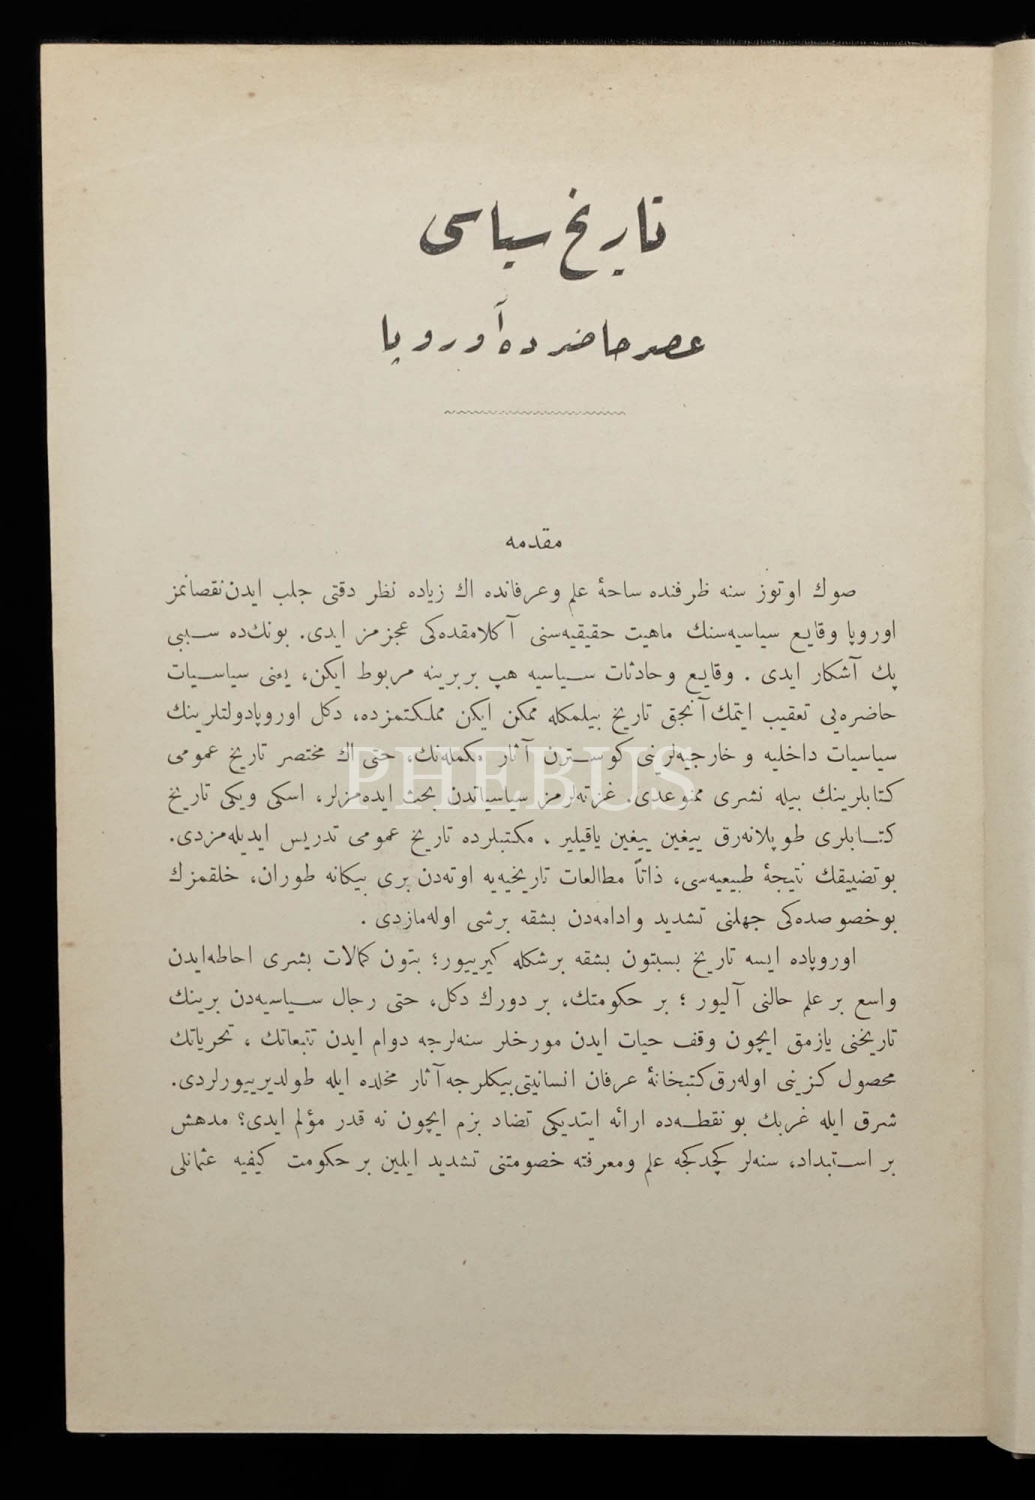 تاریخ سیاسی
عصر حاضرده آوروپا
مقدمه
صوك اوتوز سنه ظرفنده ساحهٔ علم وعرفانده اك زیاده نظر دقتی جلب ایدن نقصانمز
اوروپا وقایع سیاسیه‌سنك ماهیت حقیقیه‌سنی آكلامقده‌كی عجزمز ایدی. بونك‌ده سببی
پك آشكار ایدی . وقایع وحادثات سیاسیه هپ بربرینه مربوط ایكن، یعنی سیاسیات
حاضره‌یی تعقیب ایتمك آنجق تاریخ بیلمكله ممكن ایكن مملكتمزده، دكل اوروپادولتلرینك
سیاسیات داخلیه و خارجیه‌لرینی كوسترن آثار مكمله‌نك، حتی اك مختصر تاریخ عمومی
كتابلرینك بیله نشری ممنوعدی. غزته‌لرمز سیاسیاتدن بحث ایده‌مزلر، اسكی ویكی تاریخ
كتابلری طوپلانه‌رق ییغین ییغین یاقیلیر ، مكتبلرده تاریخ عمومی تدریس ایدیله‌مزدی.
بوتضییقك نتیجهٔ طبیعیه‌سی، ذاتاً مطالعات تاریخیه‌یه اوته‌دن بری بیكانه طوران، خلقمزك
بوخصوصده‌كی جهلنی تشدید وادامه‌دن بشقه برشی اوله‌مازدی .
اوروپاده ایسه تاریخ بسبتون بشقه برشكله كیرییور؛ بتون كمالات بشری احاطه‌ایدن
واسع بر علم حالنی آلیور ؛ بر حكومتك، بر دورك دكل، حتی رجال سیاسیه‌دن برینك
تاریخنی یازمق ایچون وقف حیات ایدن مورخلر سنه‌لرجه دوام ایدن تتبعاتك ، تحریاتك
محصول كزینی اوله‌رق كتبخانهٔ عرفان انسانیتی بیكلرجه آثار مخلده ایله طولدیرییورلردی.
شرق ایله غربك بو نقطه‌ده ارائه ایتدیكی تضاد بزم ایچون نه قدر مؤلم ایدی؟ مدهش
بر استبداد، سنه‌لر كچدكجه علم ومعرفته خصومتنی تشدید ایلین بر حكومت كیفیه عثمانلی
PHEBUS